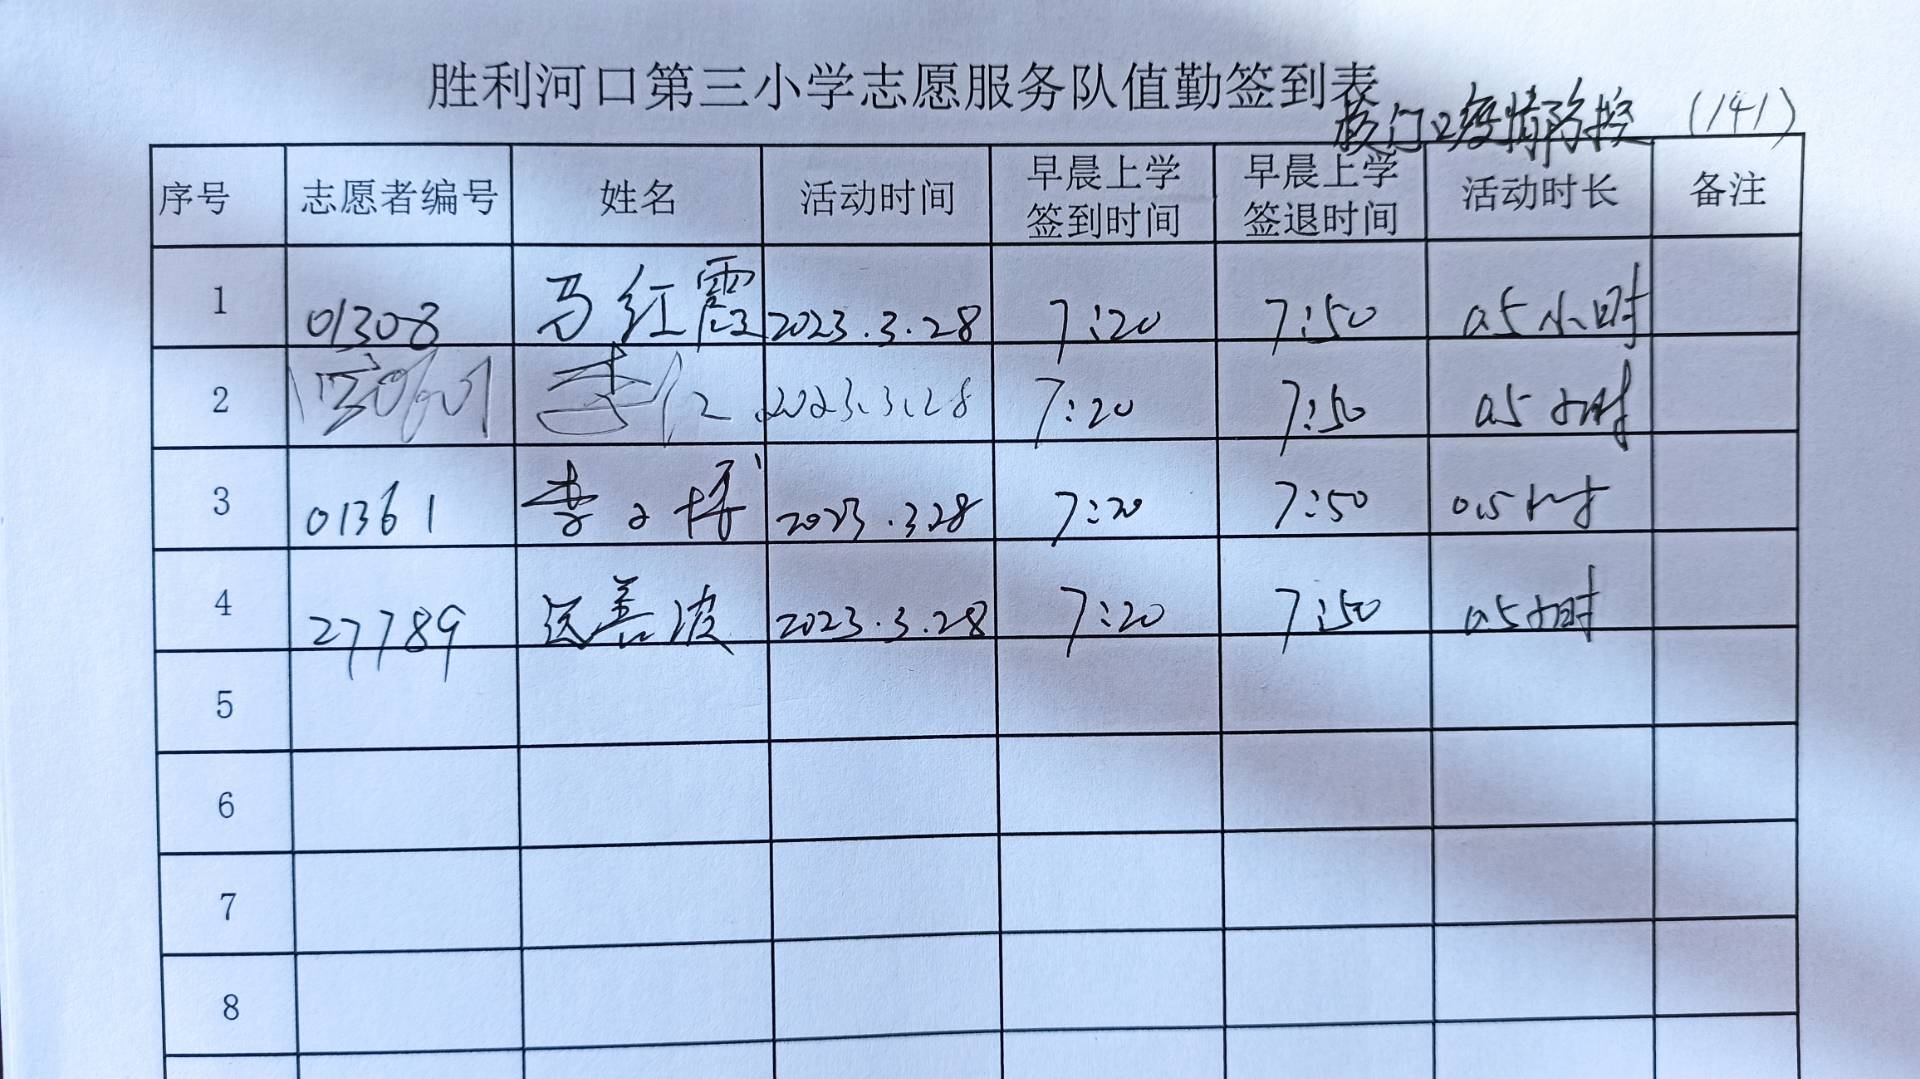 胜利河口第三小学志愿服务队值勤签到表
校门口疫情防控 (141)
序号 志愿者编号 姓名 活动时间 早晨上学签到时间 早晨上学签退时间 活动时长 备注
1 01308 马红霞 2023.3.28 7:20 7:50 0.5小时
2 李仁 2023.3.28 7:20 7:50 0.5小时
3 01361 李 2023.3.28 7:20 7:50 0.5小时
4 27789 善波 2023.3.28 7:20 7:50 0.5小时
5
6
7
8